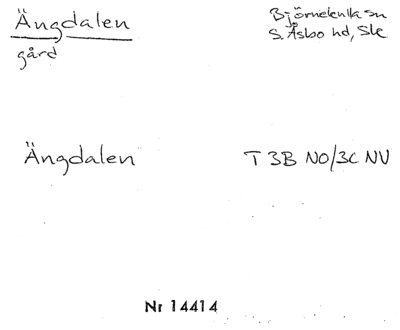 Ängdalen
gård
Björnekulla sn
S. Åsbo hd, Sk
Ängdalen
T 3B NO/3C NV
Nr 14414